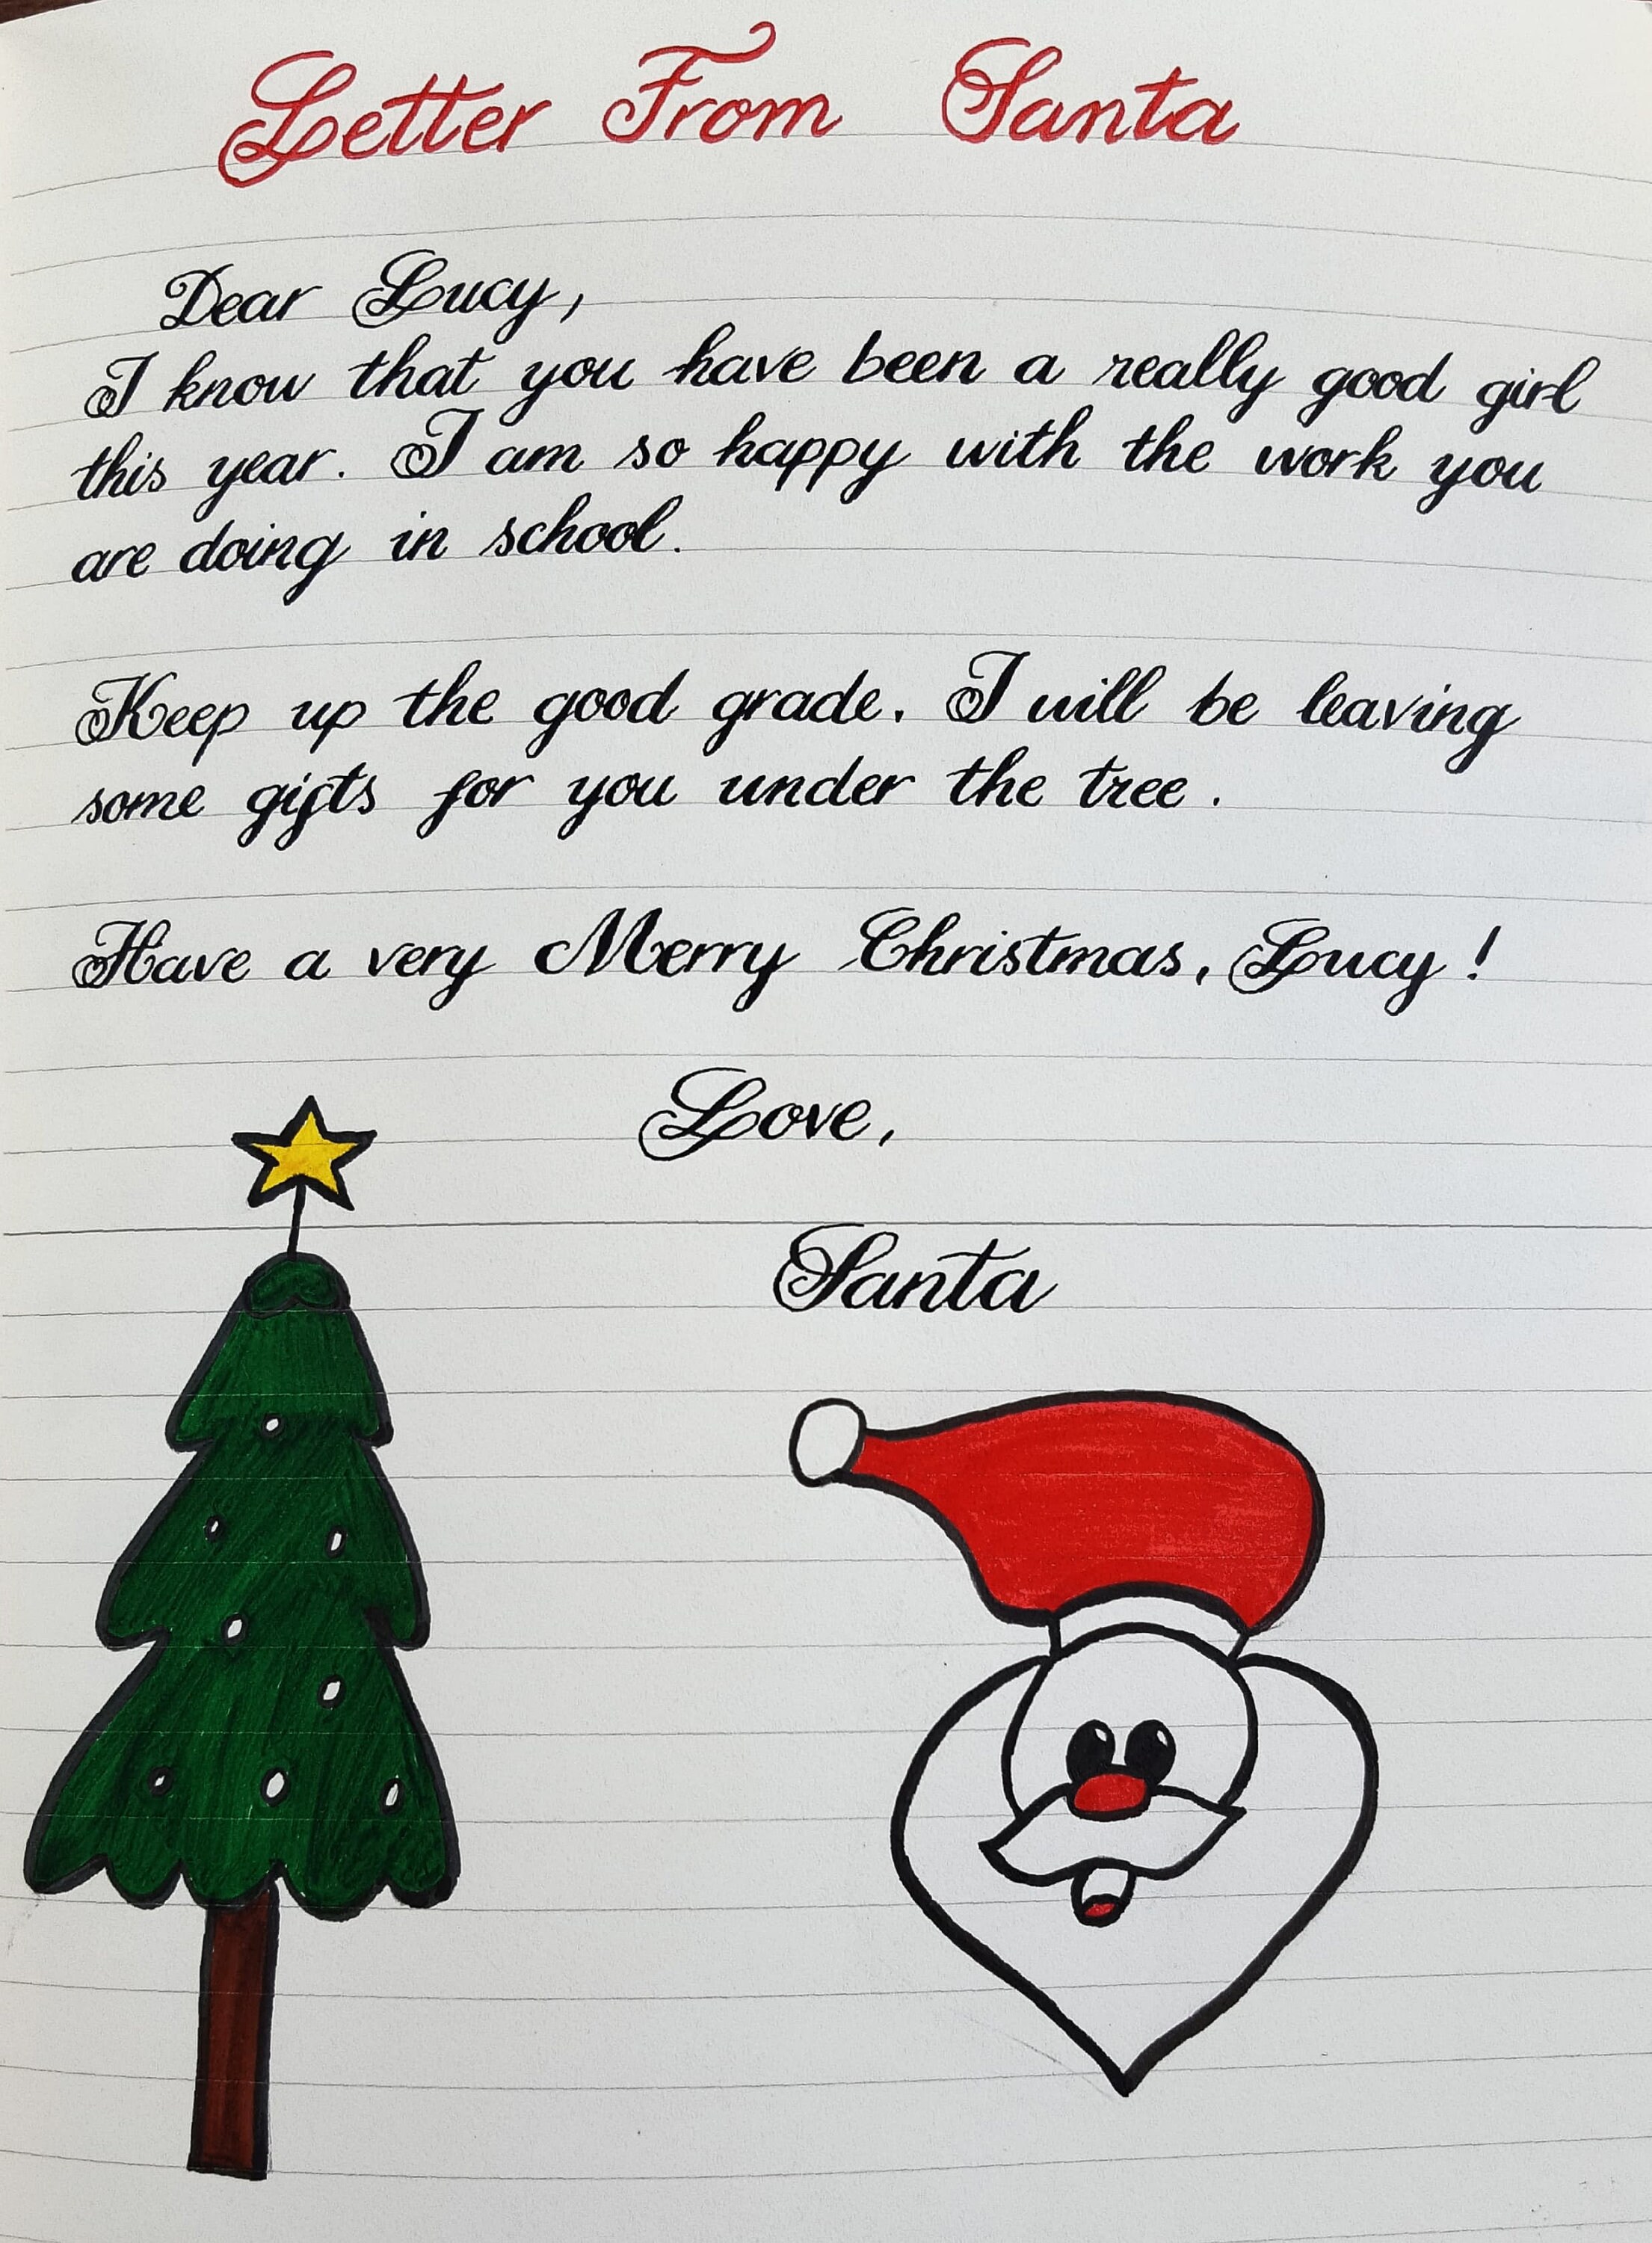 Letter From Santa
Dear Lucy,
I know that you have been a really good girl
this year. I am so happy with the work you
are doing in school.
Keep up the good grade. I will be leaving
some gifts for you under the tree.
Have a very Merry Christmas, Lucy!
Love,
Santa